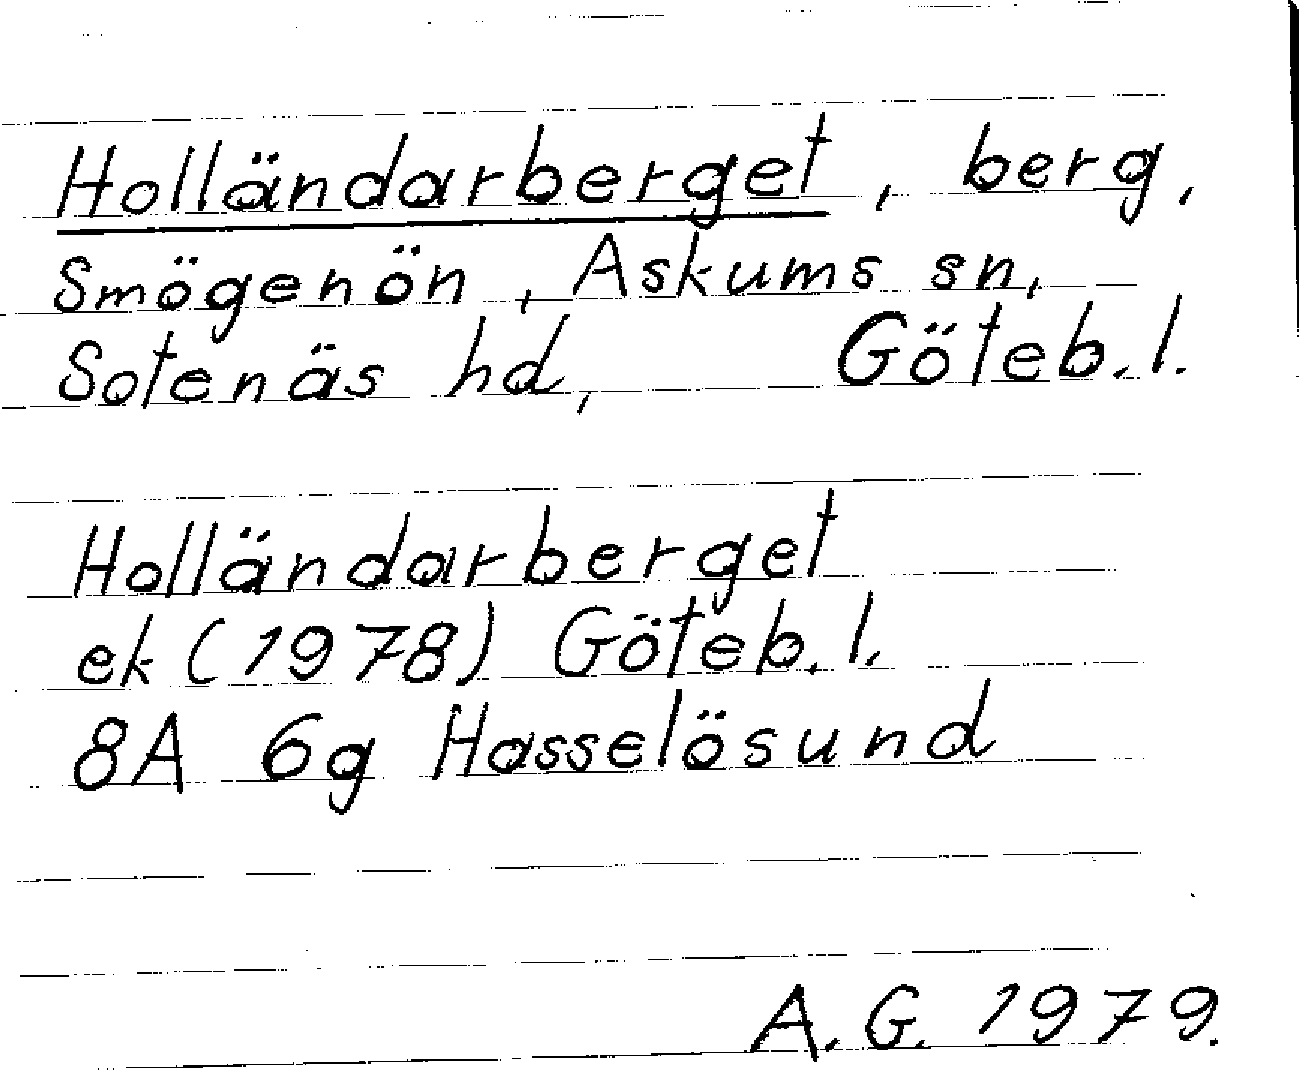 Holländarberget, berg,
Smögenön, Askums sn,
Sotenäs hd, Göteb. l.
Holländarberget
ek (1978) Göteb. l.
8A 6g Hasselösund
A. G. 1979.